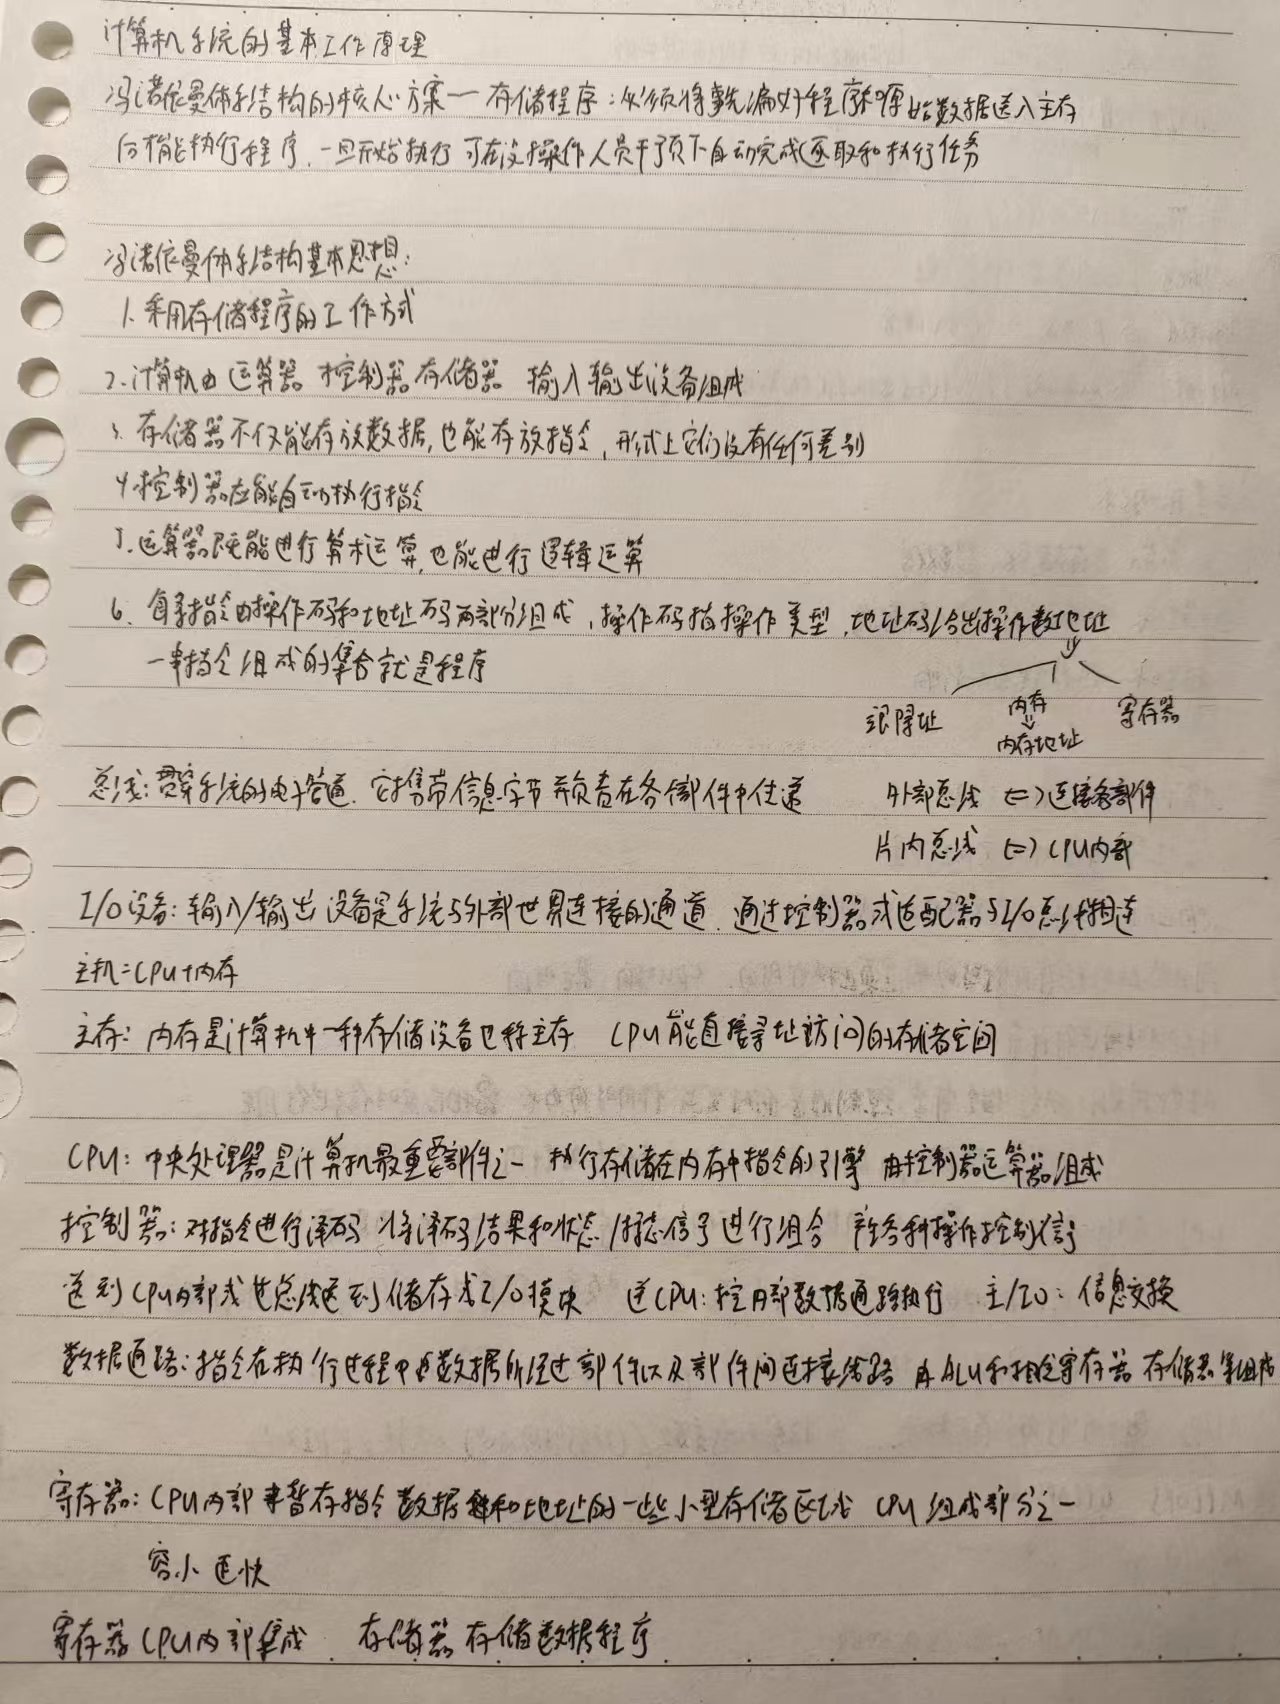 计算机系统的基本工作原理
冯诺依曼体系结构的核心方案一存储程序:必须将事先编好程序和原始数据送入主存
后才能执行程序,一旦开始执行 可在没操作人员干预下自动完成逐取和执行任务
冯诺依曼体系结构基本思想:
1.采用存储程序的工作方式
2.计算机由 运算器 控制器 存储器 输入输出设备组成
3.存储器不仅能存放数据,也能存放指令,形式上它们没有任何差别
4.控制器应能自动执行指令
5.运算器既能进行算术运算,也能进行逻辑运算
6.每条指令由操作码和地址码两部分组成,操作码指操作类型,地址码给出操作数地址
一串指令组成的集合就是程序
内存 寄存器
内存地址
总线:贯穿系统的电子管道.它携带信息字节并负责在各部件中传递 外部总线 <=>连接各部件
片内总线 <=> CPU内部
I/O设备:输入/输出 设备是系统与外部世界连接的通道.通过控制器或适配器与I/O总线相连
主机=CPU+内存
主存:内存是计算机中一种存储设备也称主存 CPU能直接寻址访问的存储空间
CPU:中央处理器是计算机最重要部件之一 执行存储在内存中指令的引擎 由控制器运算器组成
控制器:对指令进行译码 将译码结果和状态/标志信号进行组合 产生各种操作控制信号
送到CPU内部或其总线送到储存或I/O模块 送CPU:控内部数据通路执行 主/IO:信息交换
数据通路:指令在执行过程中数据所经过部件以及部件间连接线路 由ALU和相应寄存器 存储器等组成
寄存器:CPU内部来暂存指令 数据和地址的一些小型存储区域 CPU组成部分之一
容小 速快
寄存器CPU内部集成 存储器存储数据程序